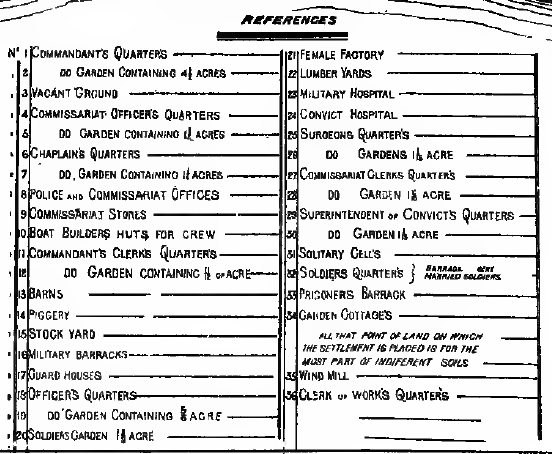 REFERENCES
Nº 1 COMMANDANT'S QUARTERS
2 DO GARDEN CONTAINING ACRES
3 VACANT GROUND
4 COMMISSARIAT OFFICER'S QUARTERS
5 DO GARDEN CONTAINING ACRES
6 CHAPLAIN'S QUARTERS
7 DO. GARDEN CONTAINING ACRES
8 POLICE AND COMMISSARIAT OFFICES
9 COMMISSARIAT STORES
10 BOAT BUILDERS HUTS FOR CREW
11 COMMANDANT'S CLERK'S QUARTER'S
12 DO GARDEN CONTAINING OF ACRE
13 BARNS
14 PIGGERY
15 STOCK YARD
16 MILITARY BARRACKS
17 GUARD HOUSES
18 OFFICER'S QUARTERS
19 DO GARDEN CONTAINING ACRE
20 SOLDIERS GARDEN ACRE
21 FEMALE FACTORY
22 LUMBER YARDS
23 MILITARY HOSPITAL
24 CONVICT HOSPITAL
25 SURGEONS QUARTER'S
26 DO GARDENS ACRE
27 COMMISSARIAT CLERKS QUARTER'S
28 DO GARDEN ACRE
29 SUPERINTENDENT OF CONVICT'S QUARTERS
30 DO GARDEN ACRE
31 SOLITARY CELL'S
32 SOLDIERS QUARTER'S } MARRIED SOLDIERS
33 PRISONERS BARRACK
34 GARDEN COTTAGE'S
ALL THAT POINT OF LAND ON WHICH
THE SETTLEMENT IS PLACED IS FOR THE
MOST PART OF INDIFERENT SOILS
35 WIND MILL
36 CLERK OF WORK'S QUARTER'S